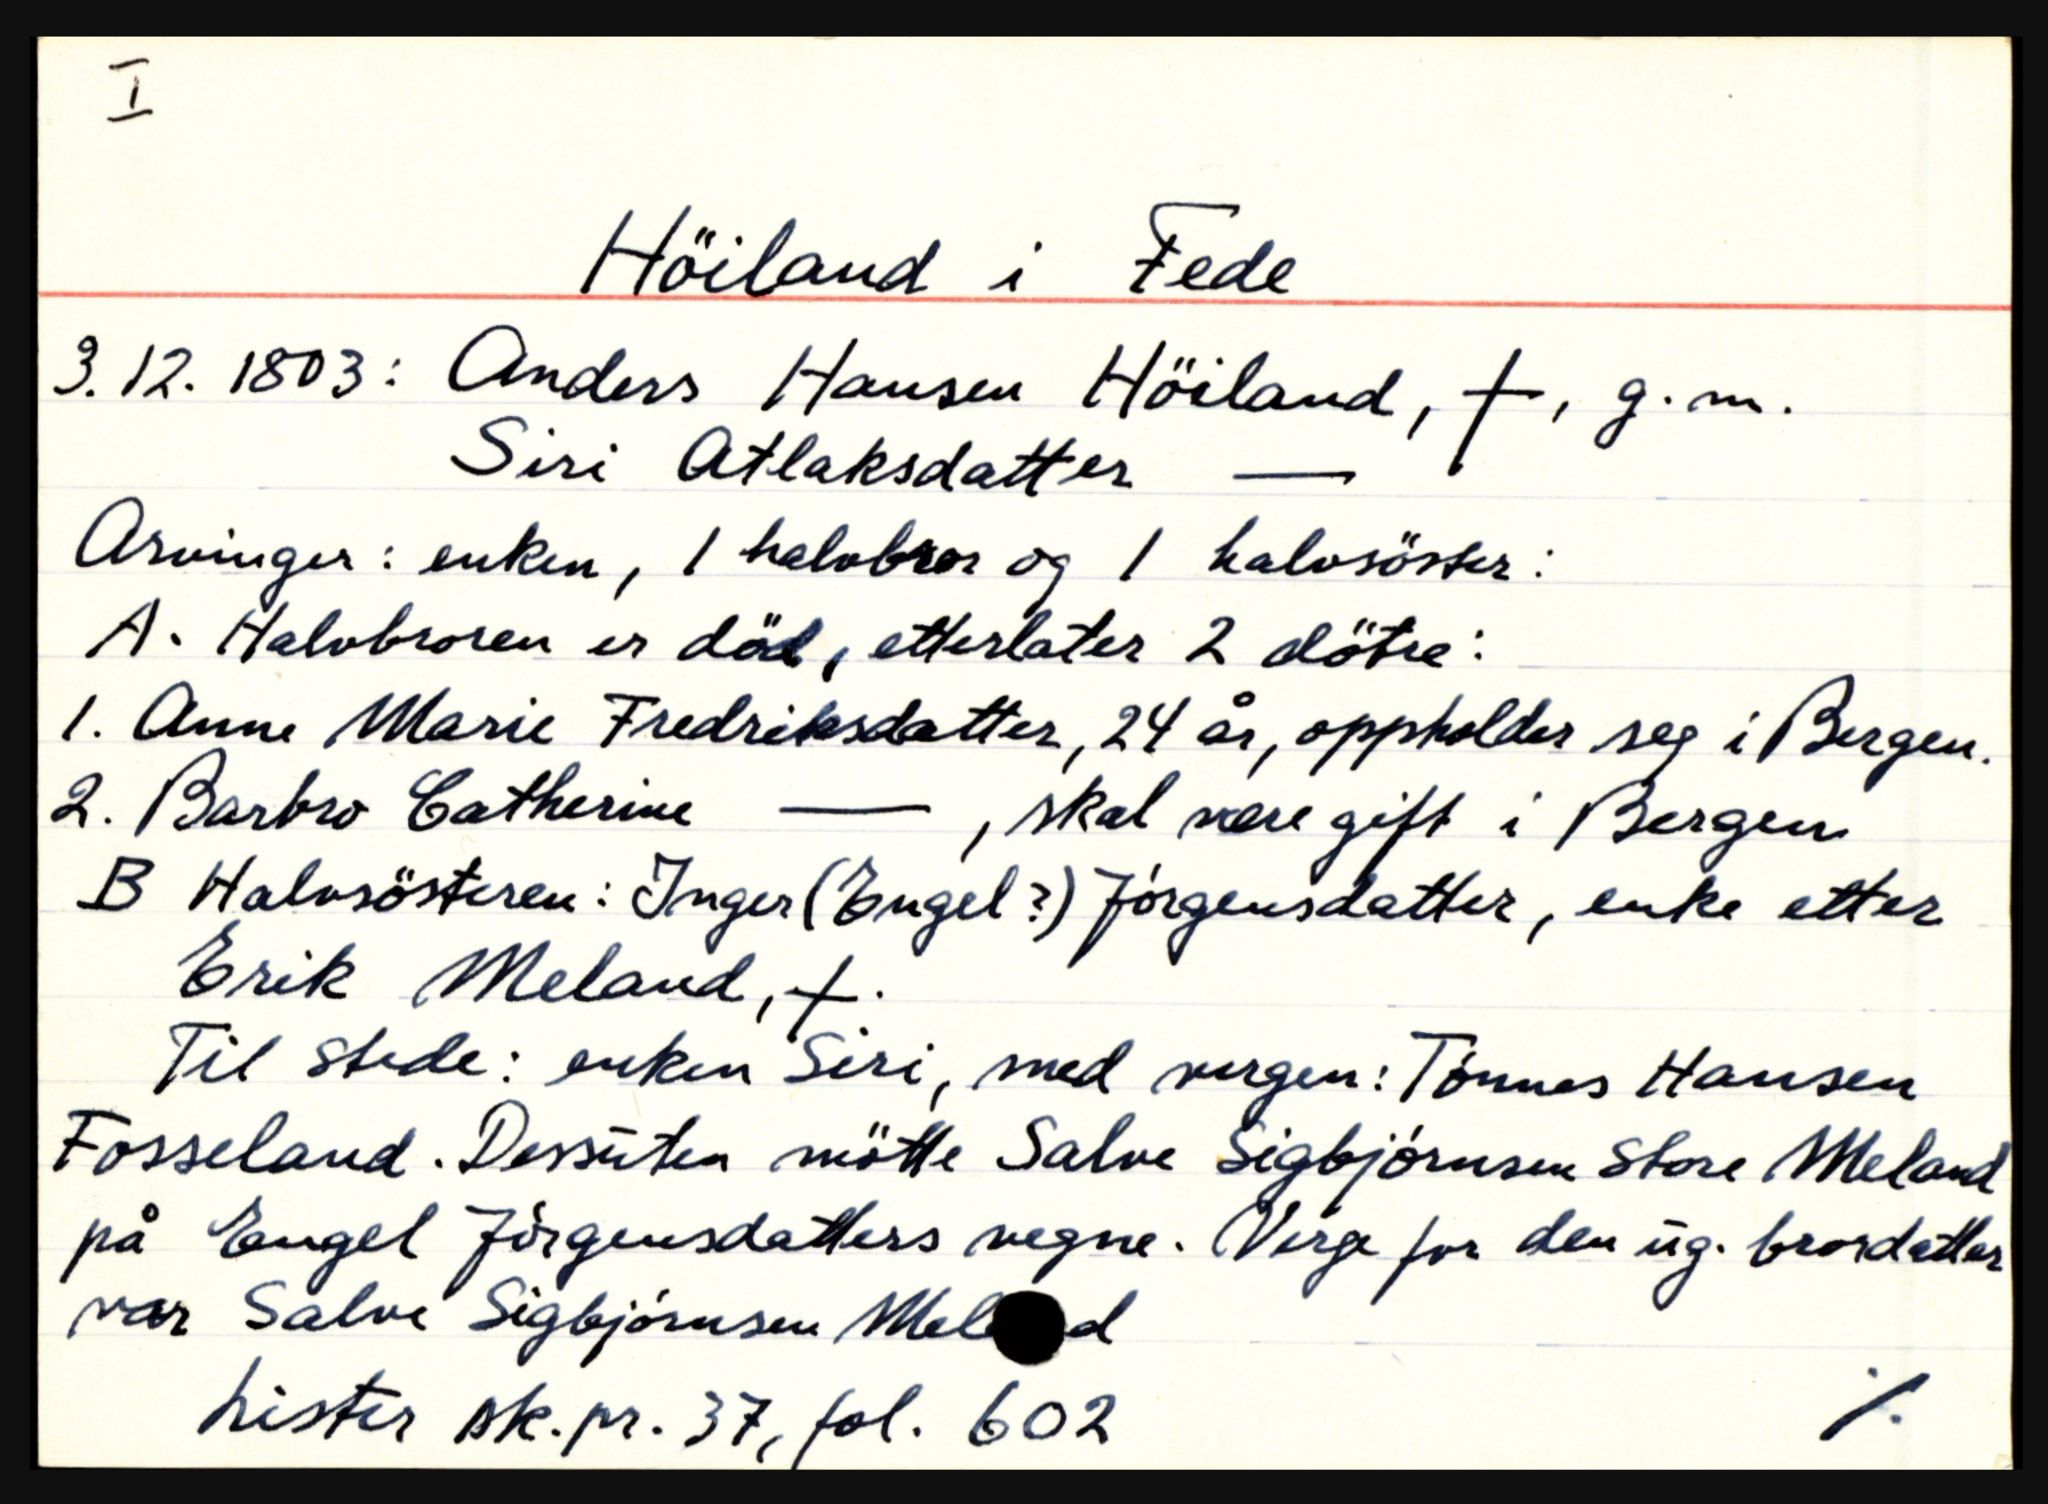 I
Höiland i Fede
3.12.1803: Anders Hansen Höiland, †, g.m.
Siri Atlaksdatter —
Arvinger: enken, 1 halvbror og 1 halvsöster:
A. Halvbroren er död, etterlater 2 dötre:
1. Anne Marie Fredriksdatter, 24 år, oppholder seg i Bergen.
2. Barbro Catherine — , skal være gift i Bergen
B Halvsösteren: Inger (Engel?) Jörgensdatter, enke etter
Erik Meland, †.
Til stede: enken Siri, med vergen: Tönnes Hansen
Fosseland. Dessūten mötte Salve Sigbjörnsen Store Meland
på Engel Jörgensdatters vegne. Verge for den ūg. brordatter
var Salve Sigbjörnsen Mel d
Lister sk.pr. 37, fol. 602 ./.